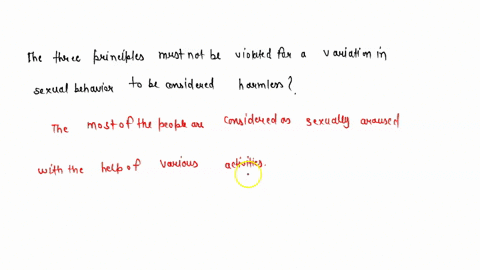 The three principles must not be violated for a variation in
sexual behavior to be considered harmless?.
The most of the people are considered as sexually aroused
with the help of various activities.